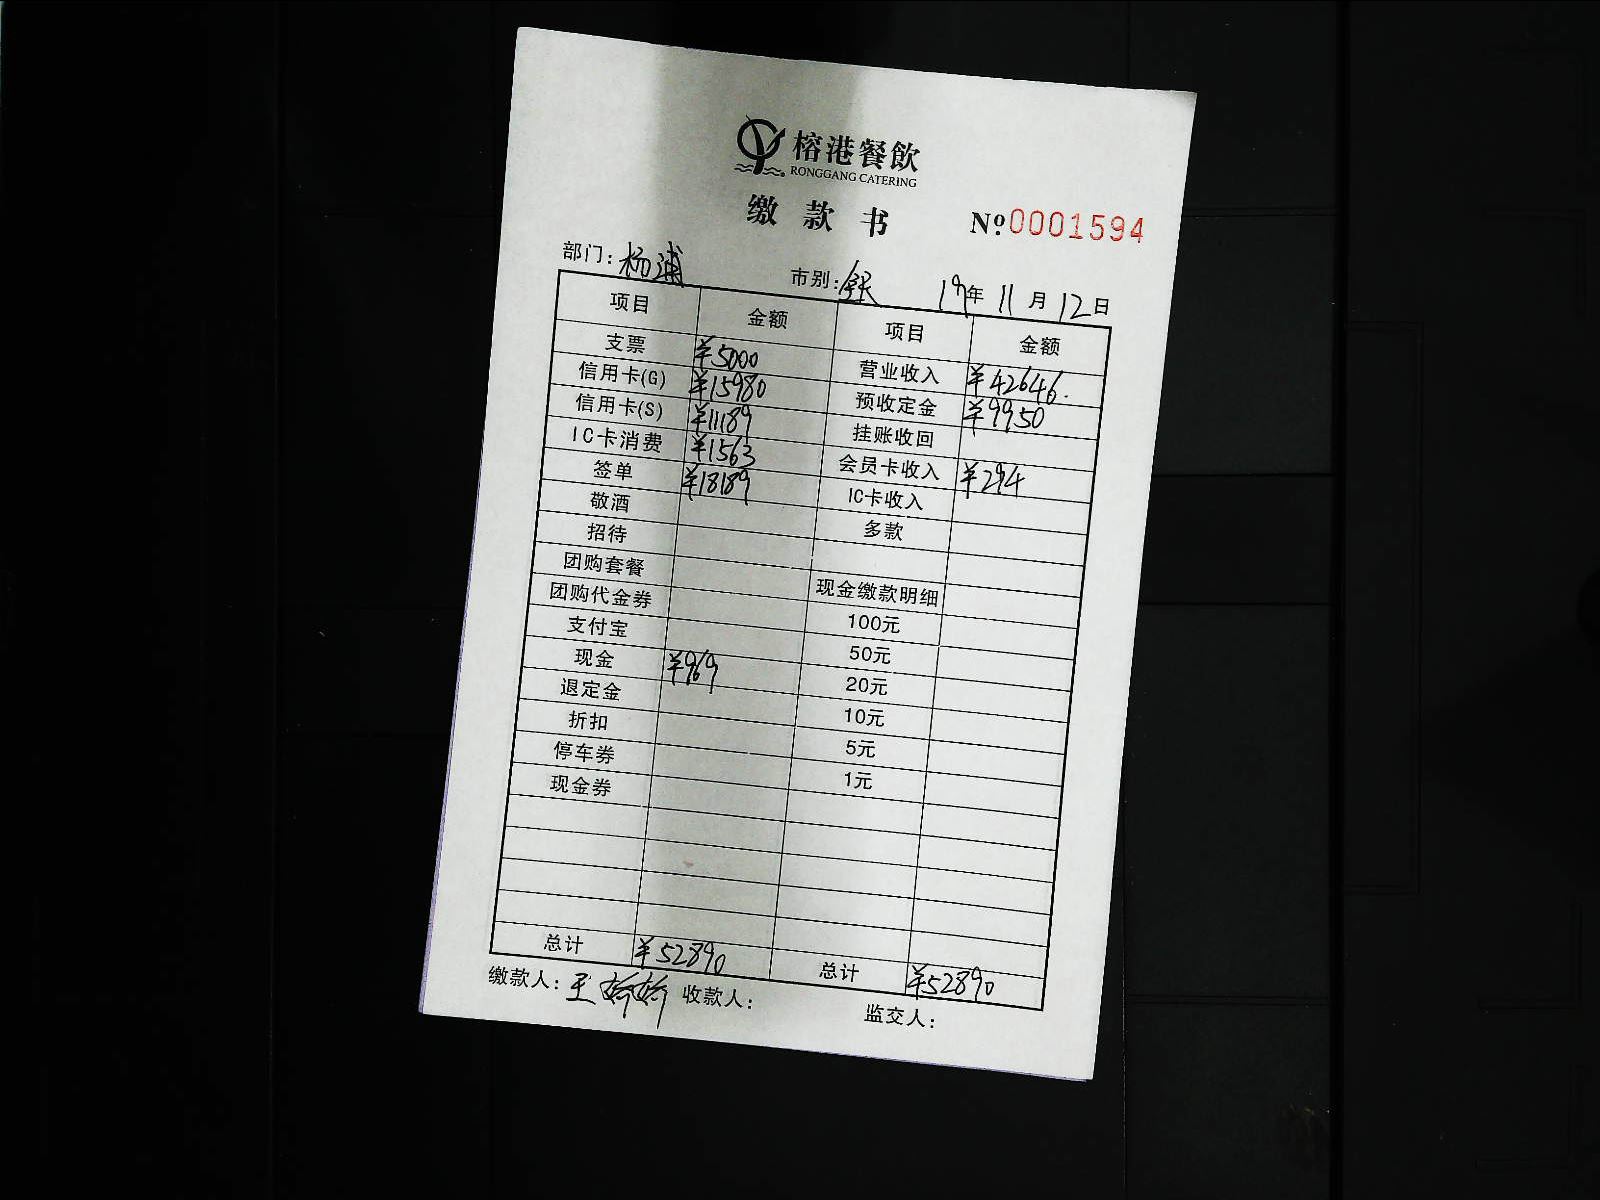 榕港餐飲
RONGGANG CATERING
缴款书 №0001594
部门：杨浦 市别：银 19年11月12日
项目 金额 项目 金额
支票 ¥5000 营业收入 ¥42646.
信用卡(G) ¥15980 预收定金 ¥9950
信用卡(S) ¥11189 挂账收回
IC卡消费 ¥1563 会员卡收入 ¥294
签单 ¥18189 IC卡收入
敬酒 多款
招待
团购套餐 现金缴款明细
团购代金券 100元
支付宝 50元
现金 ¥969 20元
退定金 10元
折扣 5元
停车券 1元
现金券
总计 ¥52890 总计 ¥52890
缴款人：王娇娇 收款人： 监交人：